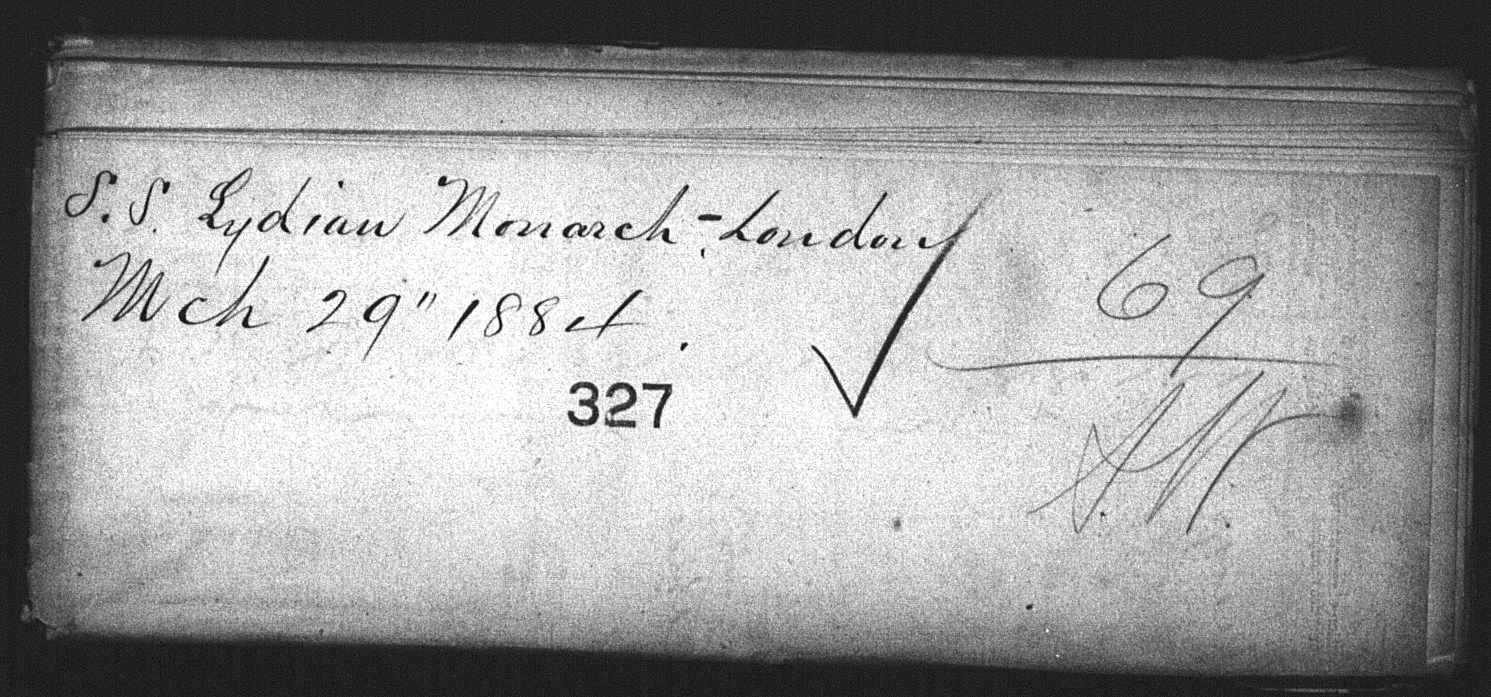 S.S. Lydian Monarch - London
Mch 29" 1884.
327
69